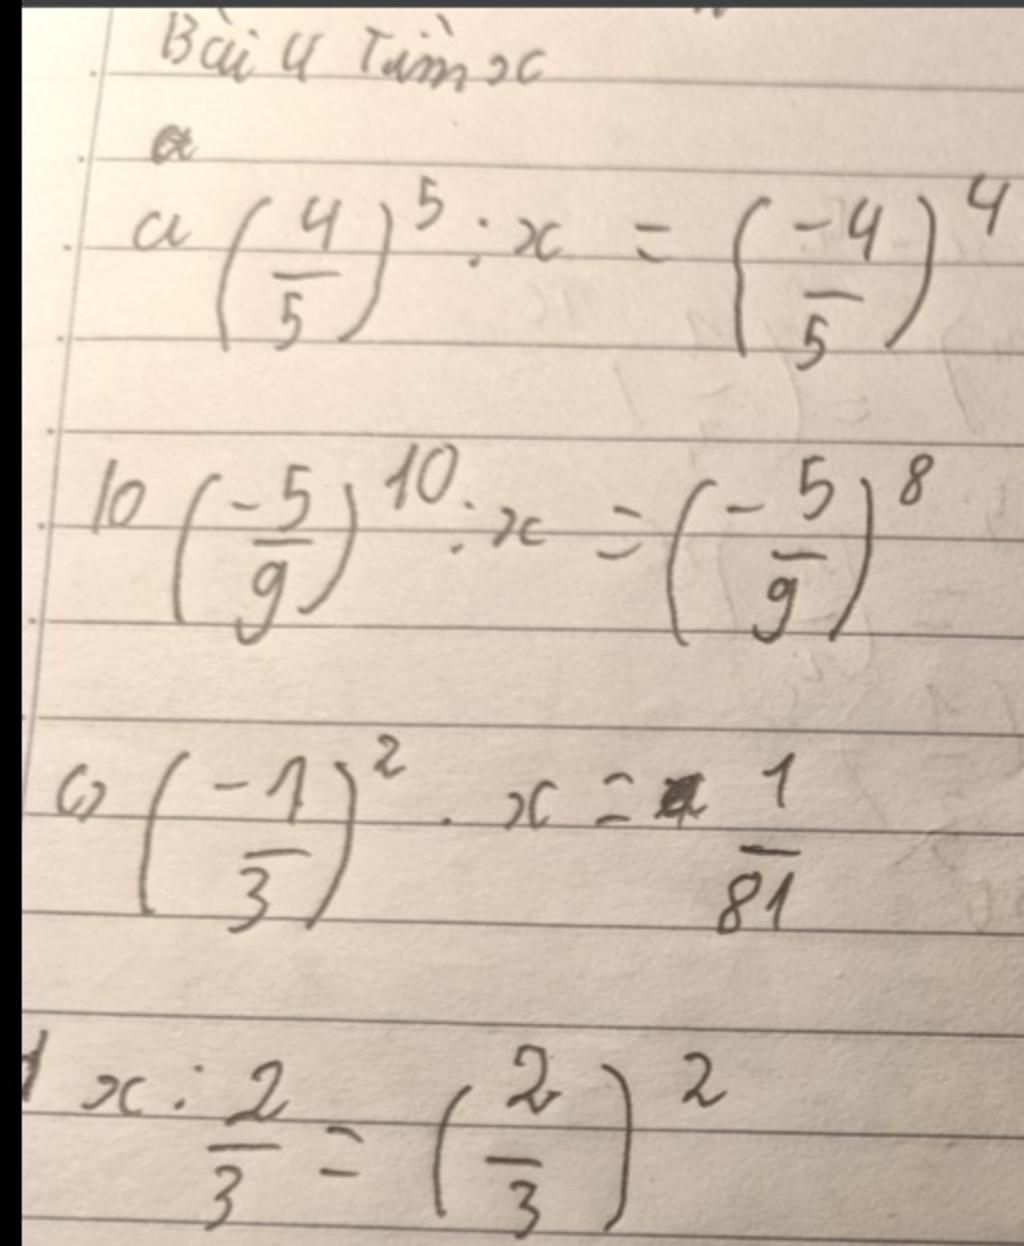 Bài 4 Tìm x
a (4/5)^5 : x = (-4/5)^4
b (-5/9)^10 : x = (-5/9)^8
c) (-1/3)^2 . x = 1/81
d x : 2/3 = (2/3)^2